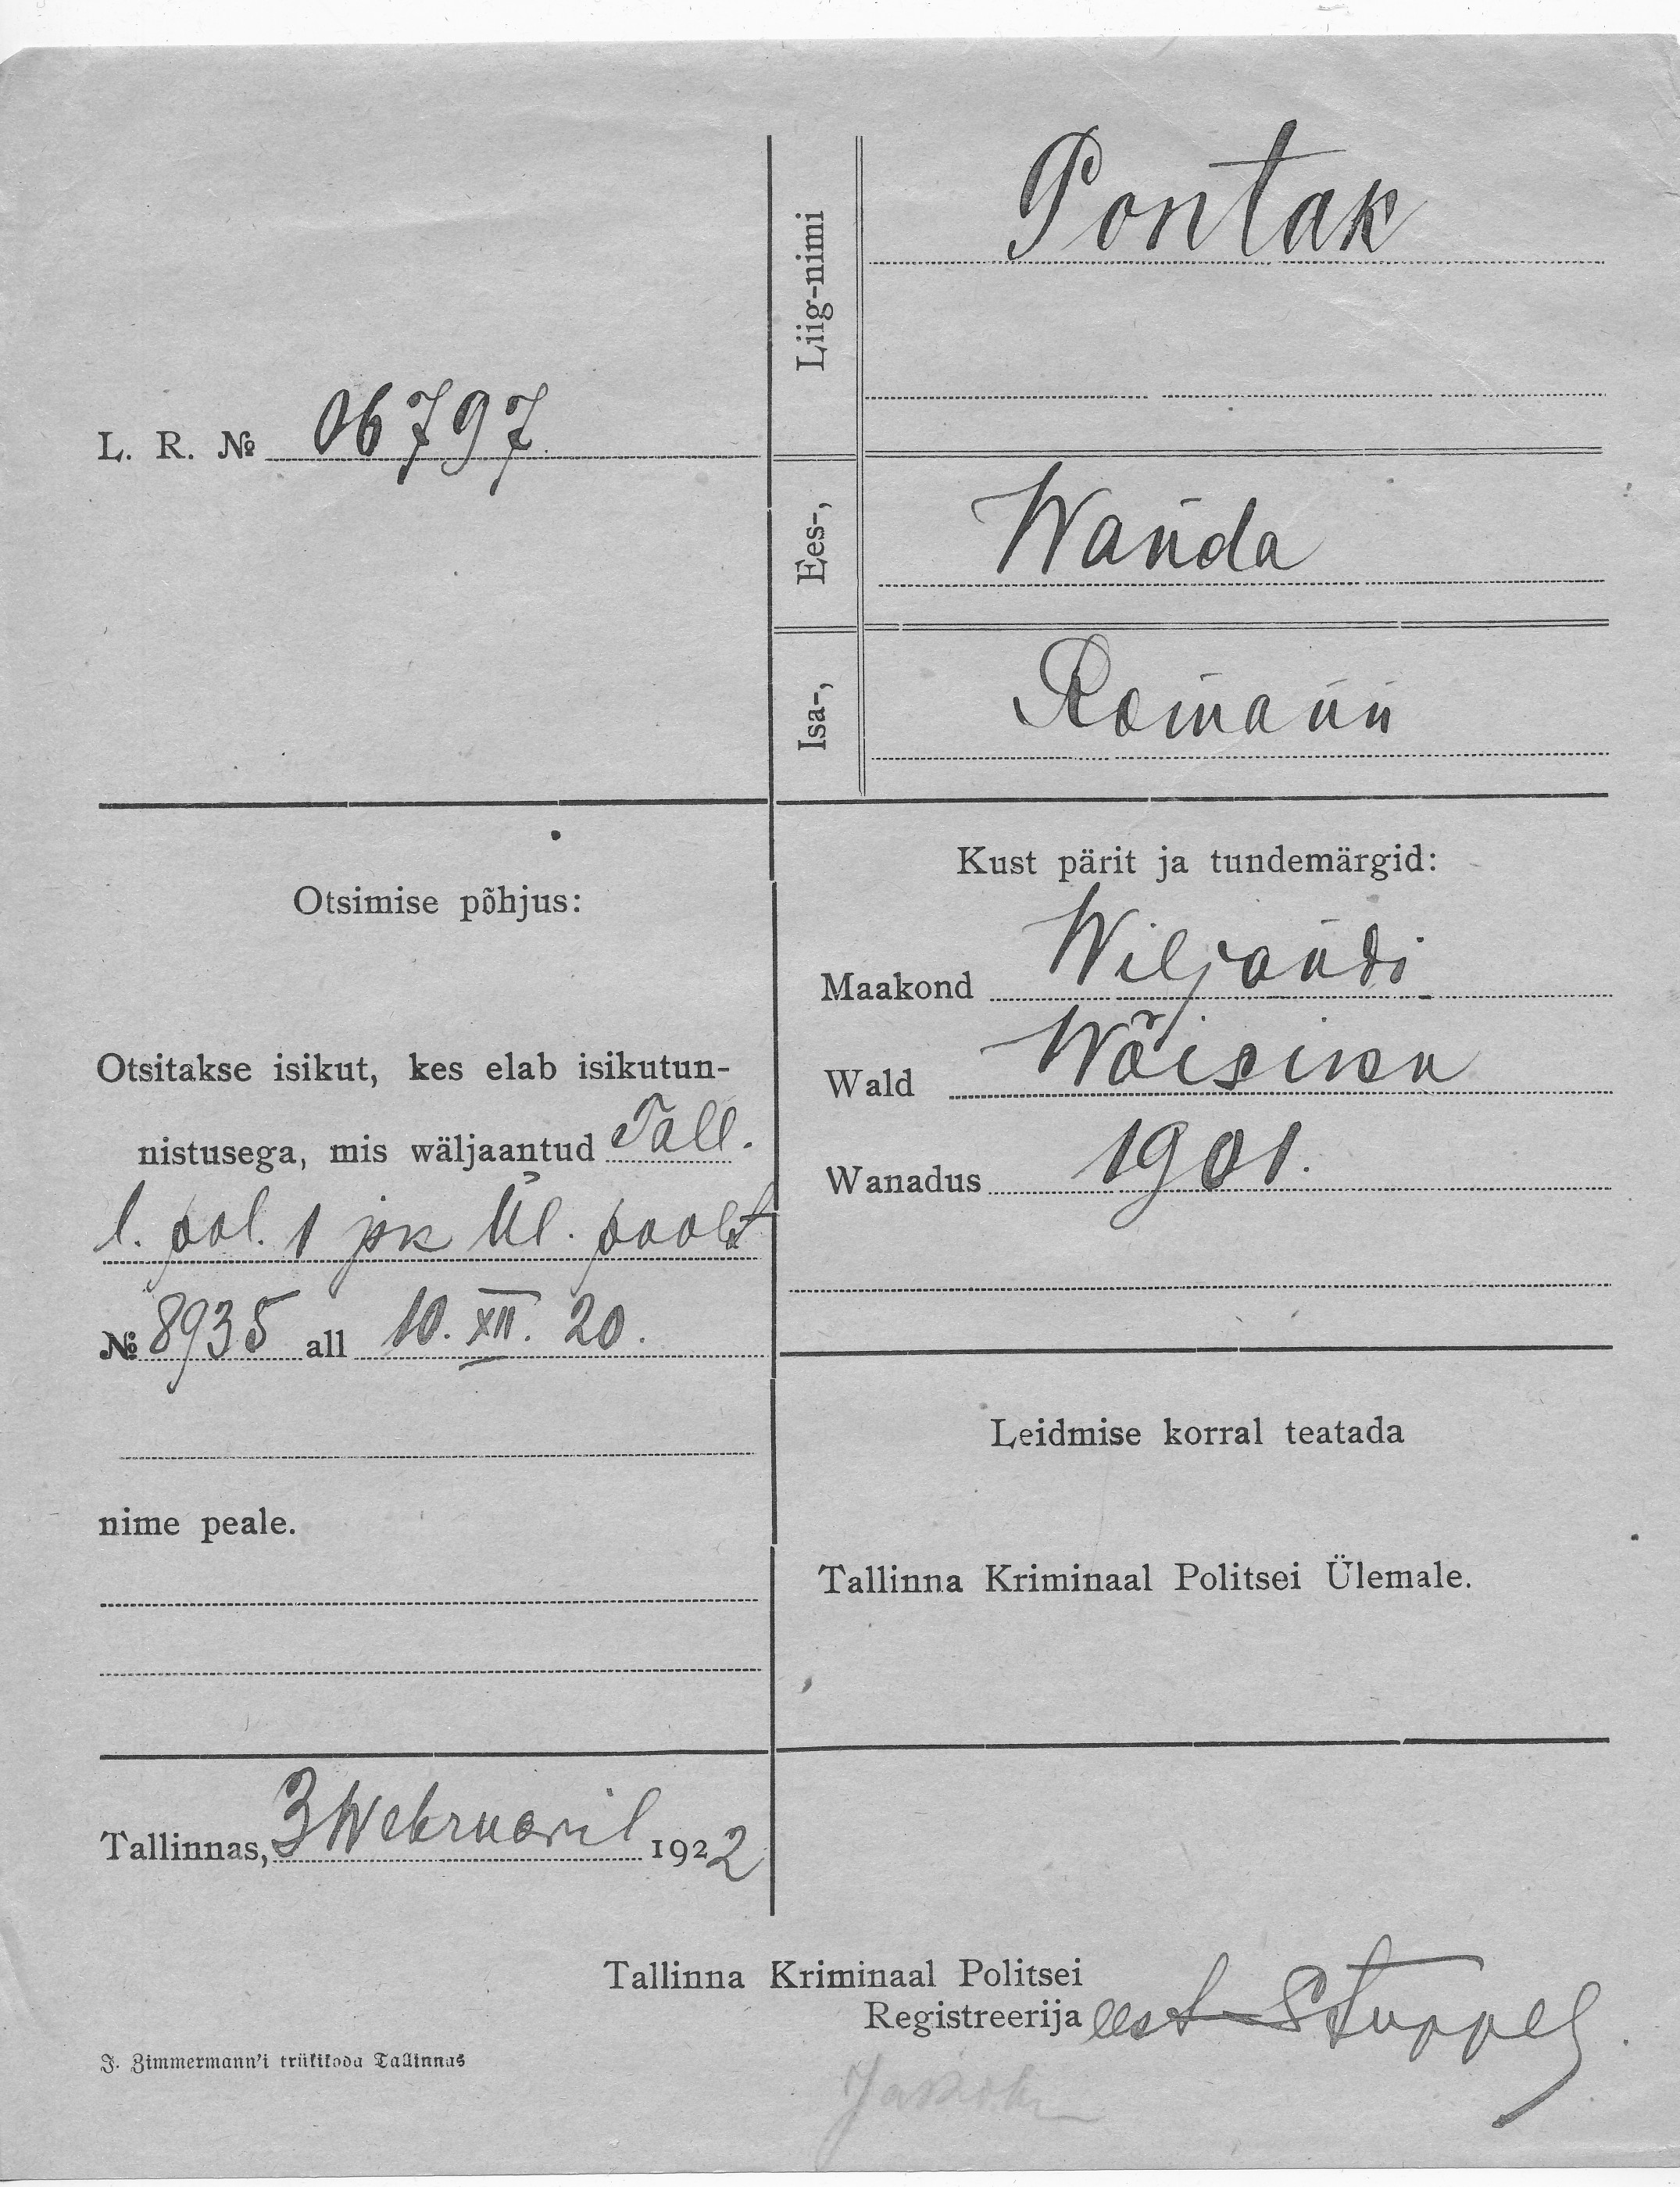 Liig-nimi Pontak
L. R. № 06797
Ees-, Wanda
Isa-, Romann
Otsimise põhjus:
Otsitakse isikut, kes elab isikutun-
nistusega, mis wäljaantud Tall.
l. pol. 1 jsk Ül. poolt
№ 8935 all 10. XII. 20.
nime peale.
Kust pärit ja tundemärgid:
Maakond Wiljandi
Wald
Wanadus 1901.
Leidmise korral teatada
Tallinna Kriminaal Politsei Ülemale.
Tallinnas, 3 Webruaril 1922
Tallinna Kriminaal Politsei
Registreerija eest
J. Zimmermann'i trükikoda Tallinnas